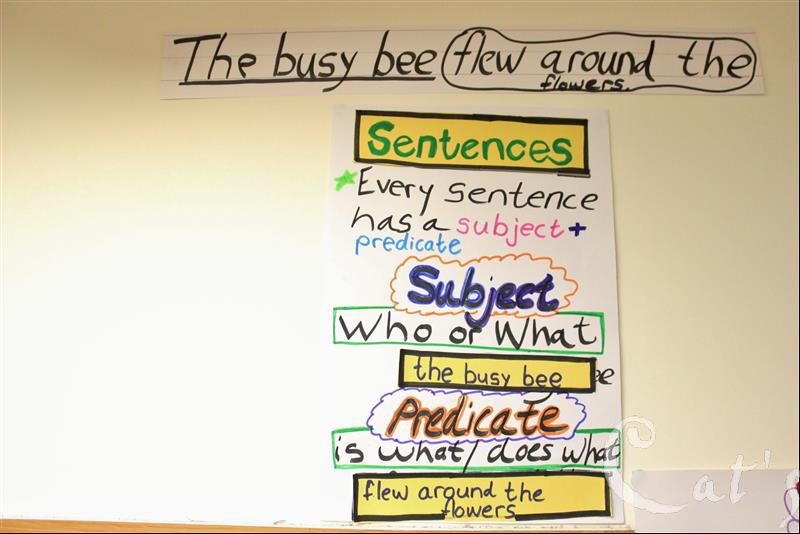 The busy bee flew around the
flowers.
Sentences
Every sentence
has a subject +
predicate
Subject
Who or What
the busy bee
Predicate
is what/does what
flew around the
flowers
Cat's